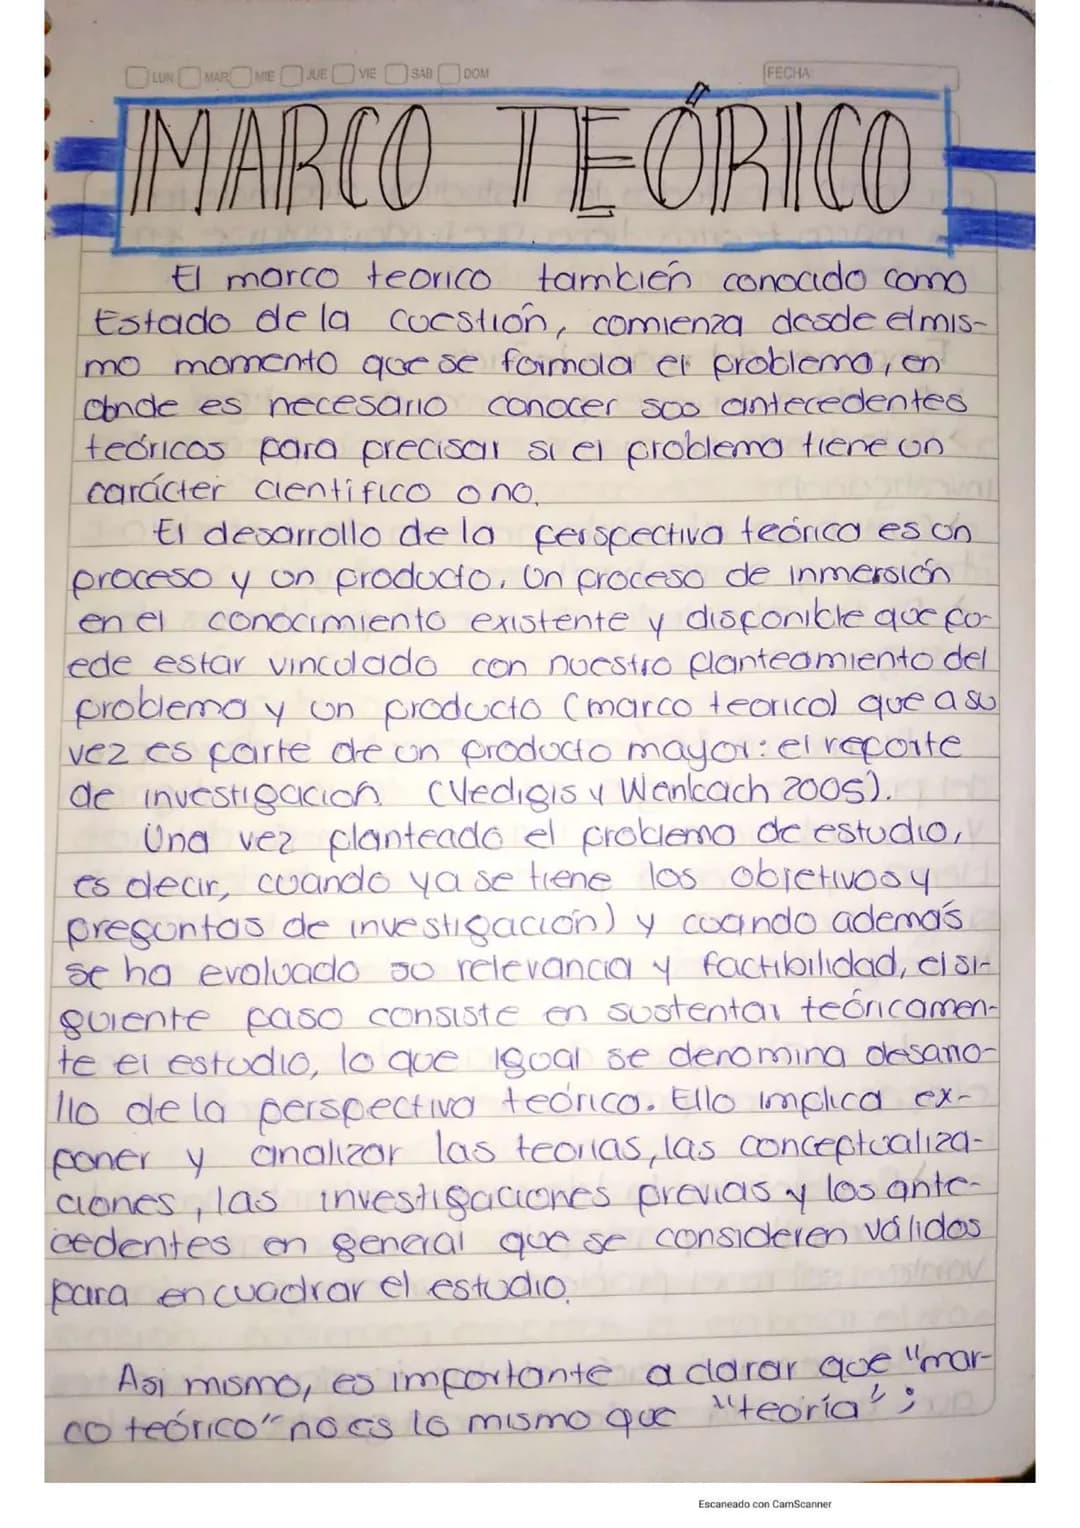 LUN MAR MIE JUE VIE SAB DOM
FECHA:
MARCO TEÓRICO
El marco teorico también conocido como
Estado de la cuestión, comienza desde el mis-
mo momento que se formula el problema, en
donde es necesario conocer sus antecedentes
teóricos para precisar si el problema tiene un
carácter cientifico o no.
El desarrollo de la perspectiva teórica es un
proceso y un producto. Un proceso de inmersión
en el conocimiento existente y disponible que pu-
ede estar vinculado con nuestro planteamiento del
problema y un producto (marco teorico) que a su
vez es parte de un producto mayor: el reporte
de investigación (Yedigis y Weinbach 2005).
Una vez planteado el problema de estudio,
es decir, cuando ya se tiene los objetivos y
preguntas de investigación) y cuando además
se ha evaluado su relevancia y factibilidad, el si-
guiente paso consiste en sustentar teóricamen-
te el estudio, lo que igual se denomina desarro-
llo de la perspectiva teórica. Ello implica ex-
poner y analizar las teorias, las conceptualiza-
ciones, las investigaciones previas y los ante-
cedentes en general que se consideren válidos
para encuadrar el estudio.
Asi mismo, es importante aclarar que "mar-
co teórico" no es lo mismo que "teoría";
Escaneado con CamScanner